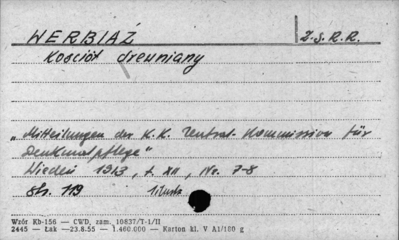 WERBIAŻ Z.S.R.R.
Kościół drewniany
„Mitteilungen der K.K. Zentral-Kommission für
Denkmalpflege"
Wiedeń 1913, t. XII, Nr. 7-8
Str. 119 1 ilustr.
Wzór Kb-156 — CWD, zam. 10837/T-1/II
2445 — Łak —23.8.55 — 1.460.000 — Karton kl. V A1/180 g